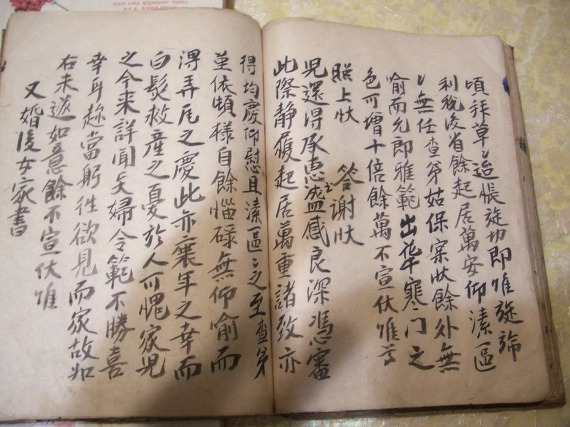 頃拜草草造悵旋切即惟旋旆
利稅後省餘起居萬安仰溸區
區無任查第姑保宲狀餘外無
喻而允郎雅範出華寒門之
色可增十倍餘萬不宣伏惟
照上狀 答謝狀
兒還得承惠盛感良深憑審
此際静履起居萬重諸致亦
得均慶仰慰且溸區區之至查第
菫依頓樣自餘惱碌無仰喻而
淂弄瓦之慶此亦衰年之幸而
白髮救產之憂於人可愧家兒
之今来詳聞夫婦令範不勝喜
幸身趁當躬徃欲見而家故如
右未遂如意餘不宣伏惟
又婚後女家書